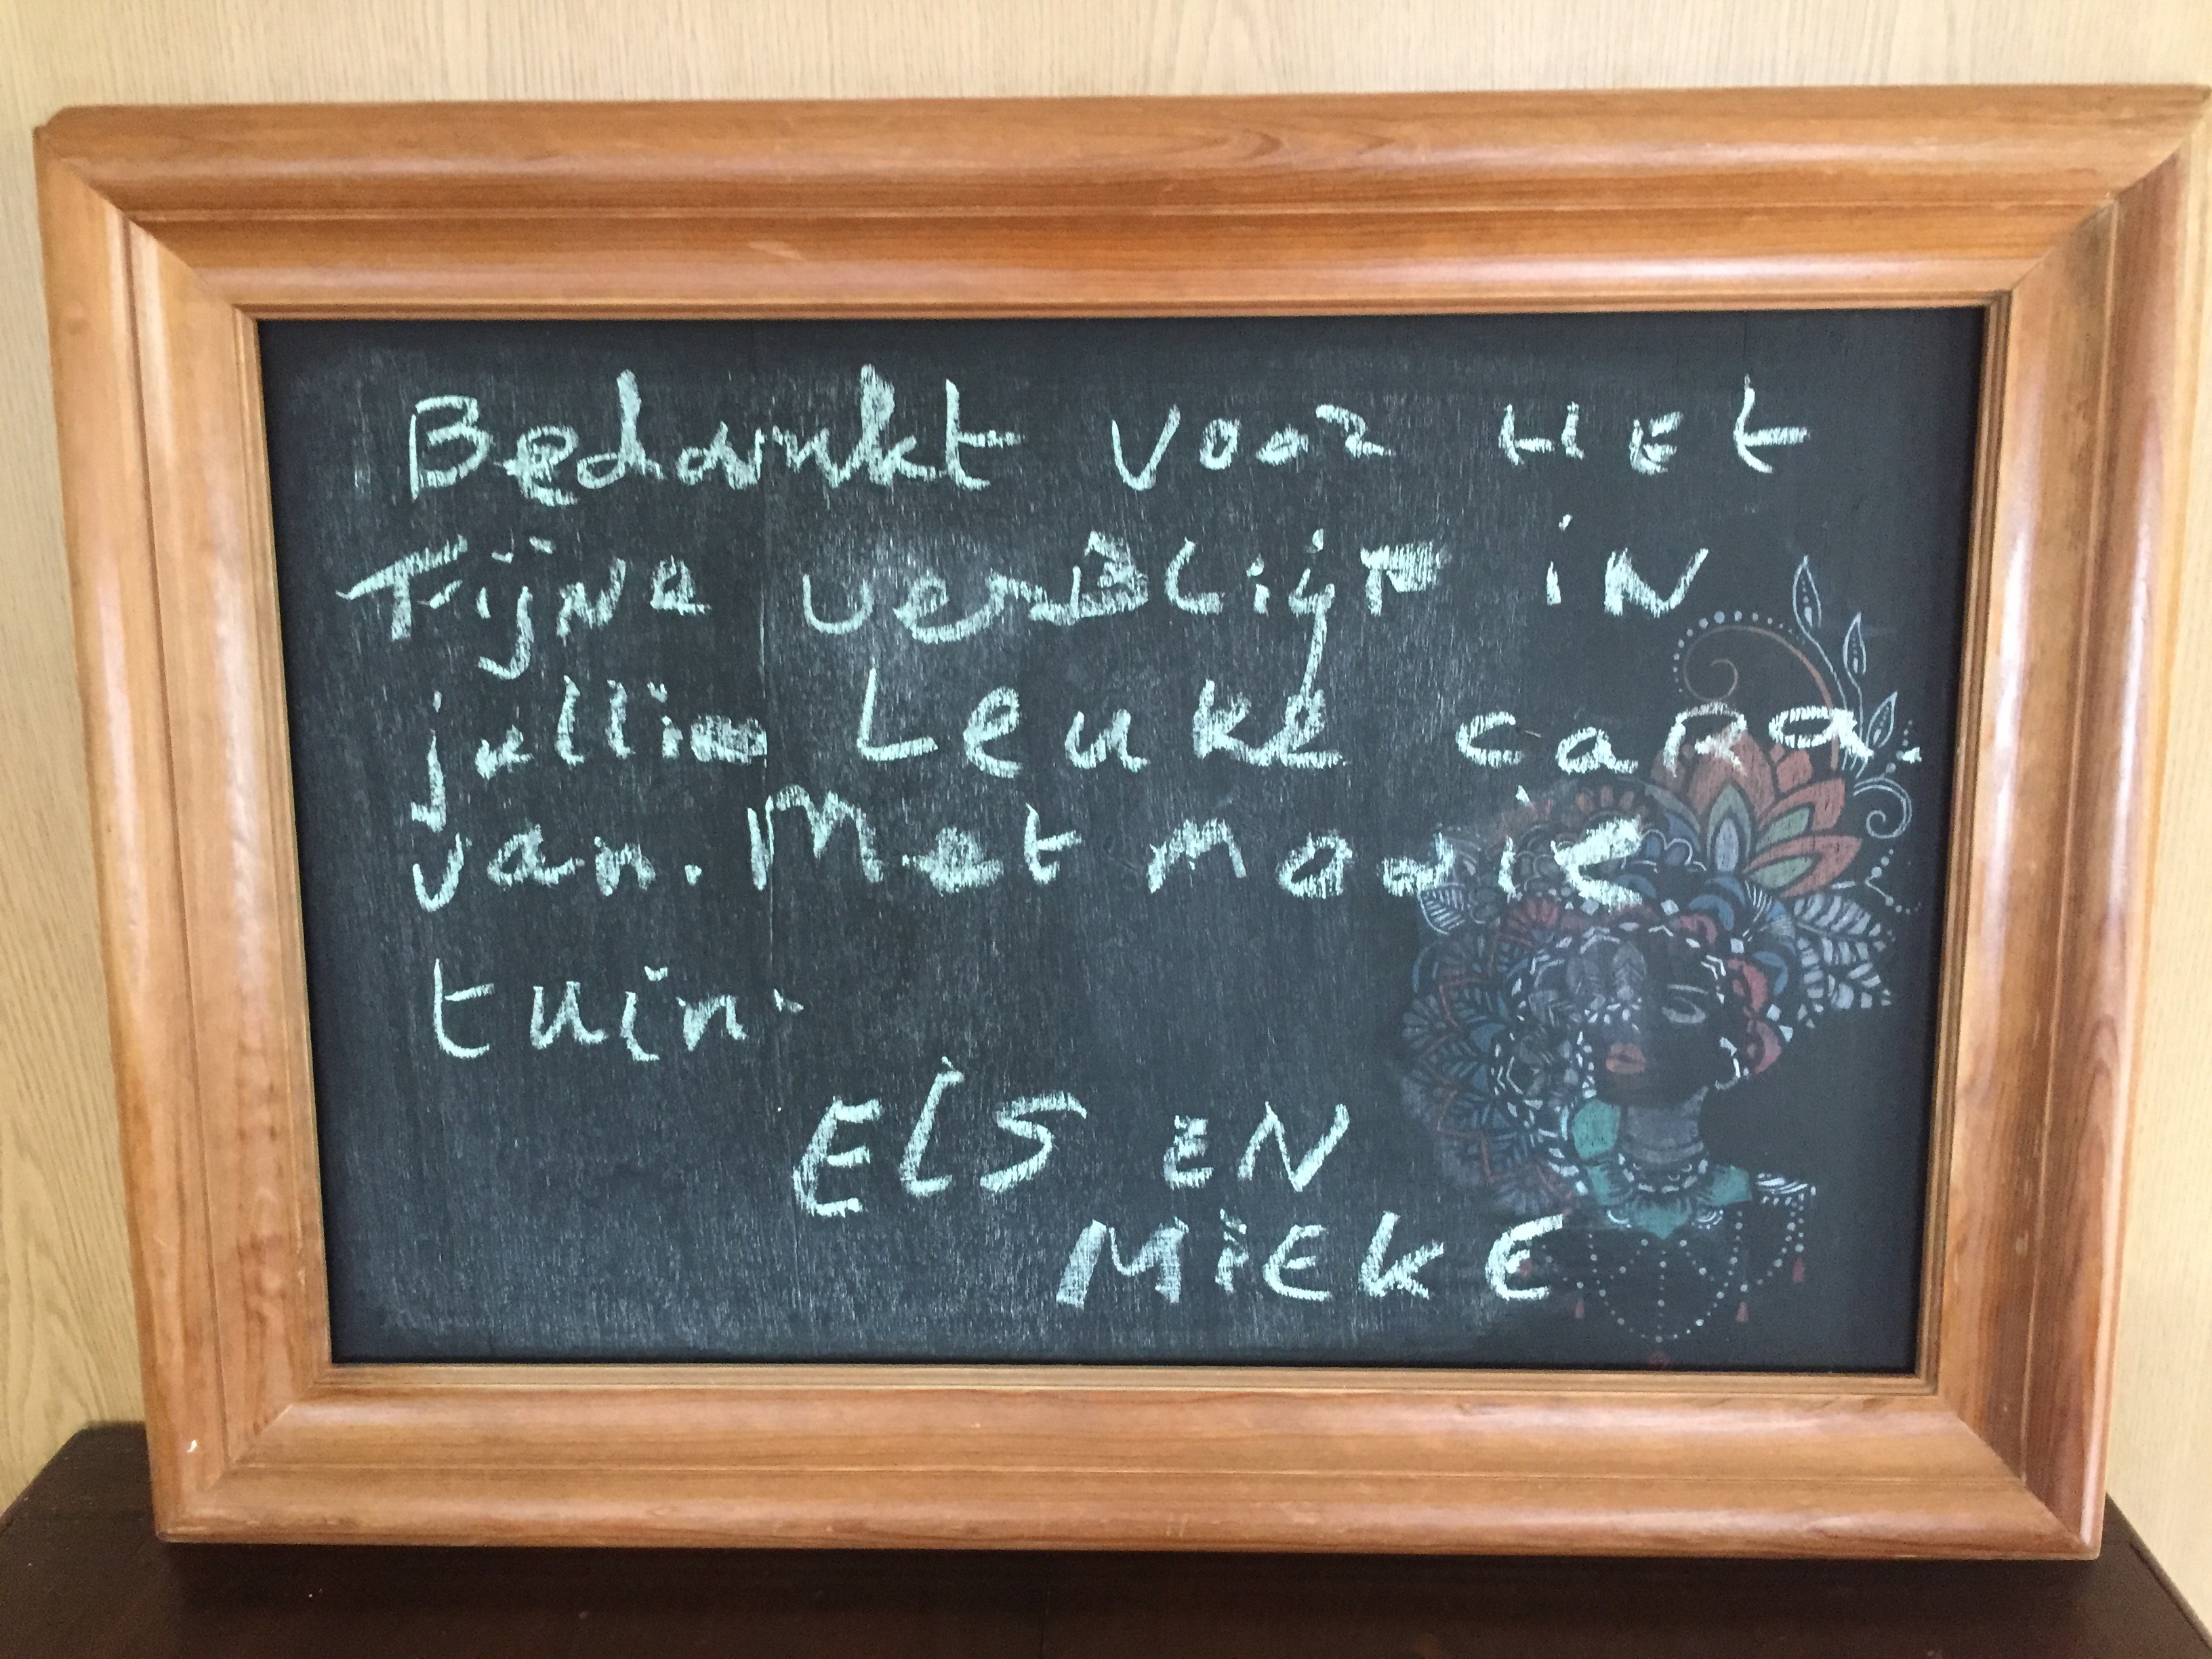 Bedankt voor HEt
Fijne verBlijF iN
jullie Leuke caRa.
van. Met mooie
tuin.
ElS EN
MiEKE